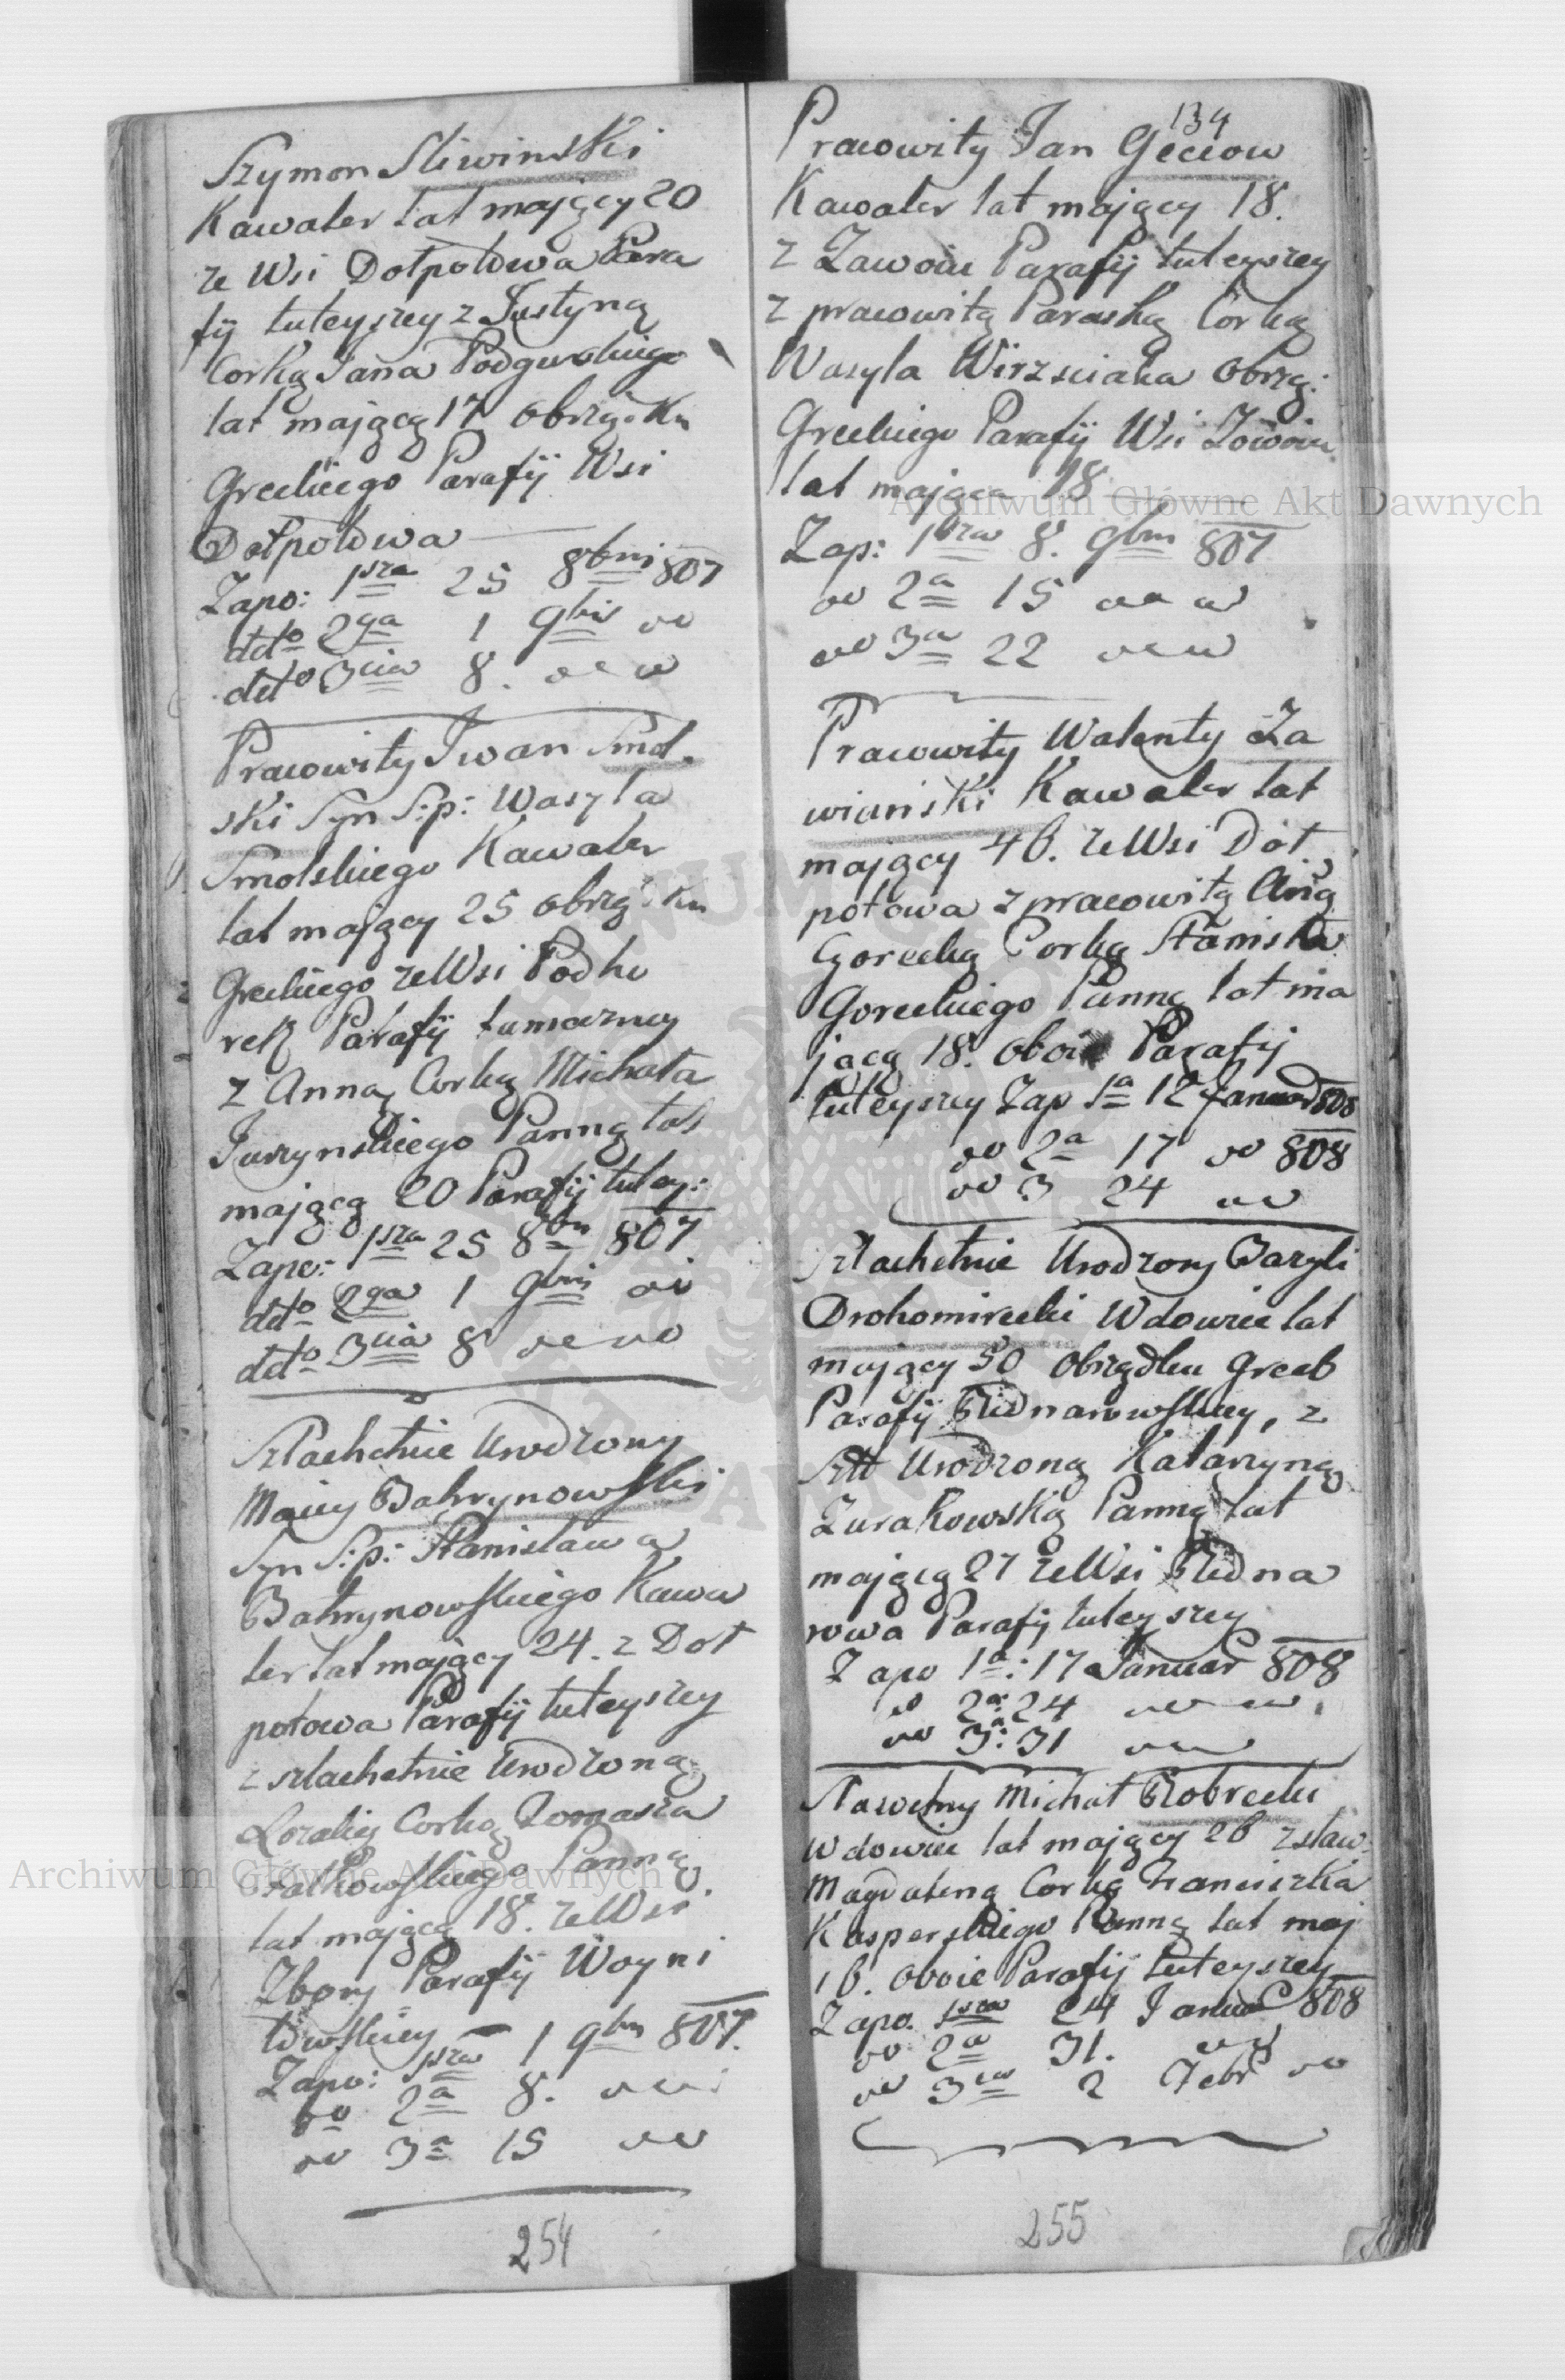 Szymon Sliwinski
Kawaler lat maiący 20
ze Wsi Dołpotowa Para
fij tuteyszey z Justyną
Corką Jana Podgurskiego
lat maiącą 17 obrząd: Ku
Greckiego Parafij Wsi
Dołpotowa
Zapo: 1sza 25 8bris 807
detto 2ga 1 9bris
detto 3cia 8.
Pracowity Iwan Smol.
ski Syn S:p: Wasyla
Smolskiego Kawaler
lat maiący 25 obrząd: Ku
Greckiego ze Wsi Podho
rek Parafij tamczney
z Anną Corką Michała
Jurzynskiego Panną lat
maiącą 20 Parafij tutey:
Zapo: 1sza 25 8bris 807
detto 2ga 1 9bris
detto 3cia 8
Szlachetnie Urodzony
Maciey Bahrynowski
Syn S:p: Stanisława
Bahrynowskiego Kawa
ler lat maiący 24. z Doł
potowa Parafij tuteyszey
z szlachetnie Urodzoną
Rozalią Corką Tomasza
Panną
lat maiącą 18. ze Wsi
Zbory Parafij Woyni
łowskiey – 1 9bris 807.
Zapo: 1sza
do 2a 8.
do 3a 15
254
134
Pracowity Jan Geciow
Kawaler lat maiący 18.
z Zawoiu Parafij tuteyszey
z pracowitą Paraską Corką
Wasyla Wirzsciaka obrzą:
Greckiego Parafij Wsi Zawoiu
lat maiąca 18
Zap: 1sza 8. 9bris 807
do 2a 15
do 3a 22
Pracowity Walenty Za
wianski Kawaler lat
maiący 46. ze Wsi Doł
potowa z pracowitą Anną
Gorecką Corką Stanisła
Goreckiego Panną lat ma
jącą 18. oboie Parafij
tuteyszey Zap 1a 12 Januar 808
do 2a 17 do 808
do 3 24
Szlachetnie Urodzony Bazyli
Drohomirecki Wdowiec lat
maiący 50 obrządku Greck
Parafij Bednarowskiey, z
Szl Urodzoną Katarzyną
Zurakowską Panną lat
maiącą 27 ze Wsi Bedna
rowa Parafij tuteyszey
Zapo 1a: 17 Januar 808
do 2a: 24
do 3a: 31
Sławetny Michał Bobrecki
Wdowiec lat maiący 26 z sław:
Magdaleną Corką Franciszka
Kasperskiego Panną lat maj
16. oboie Parafij tuteyszey
Zapo. 1sza 24 Januar 808
do 2a 31.
do 3cia 2 Febr do
255
Archiwum Główne Akt Dawnych
Archiwum Główne Akt Dawnych